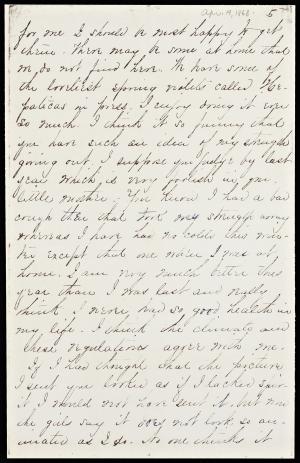 April 19, 1868. 5
for me I should be most happy to get
three. There may be some at home that
we do not find here. We have some of
the loveliest spring violets called He-
paticas in press. I enjoy doing it ever
so much. I think it so funny that
you have such an idea of my strength
giving out. I suppose you judge by last
year which is very foolish in you
little mother. You know I had a bad
cough then that took my strength away
whereas I have had no colds this win-
ter except that one when I was at
home. I am very much better this
year than I was last and really
think I never had so good health in
my life. I think the climate and
these regulations agree with me.
If I had thought that the picture
I sent you looked as if I lacked spir-
it I would not have sent it. but
the girls say it does not look so an-
imated as I do. No one thinks it